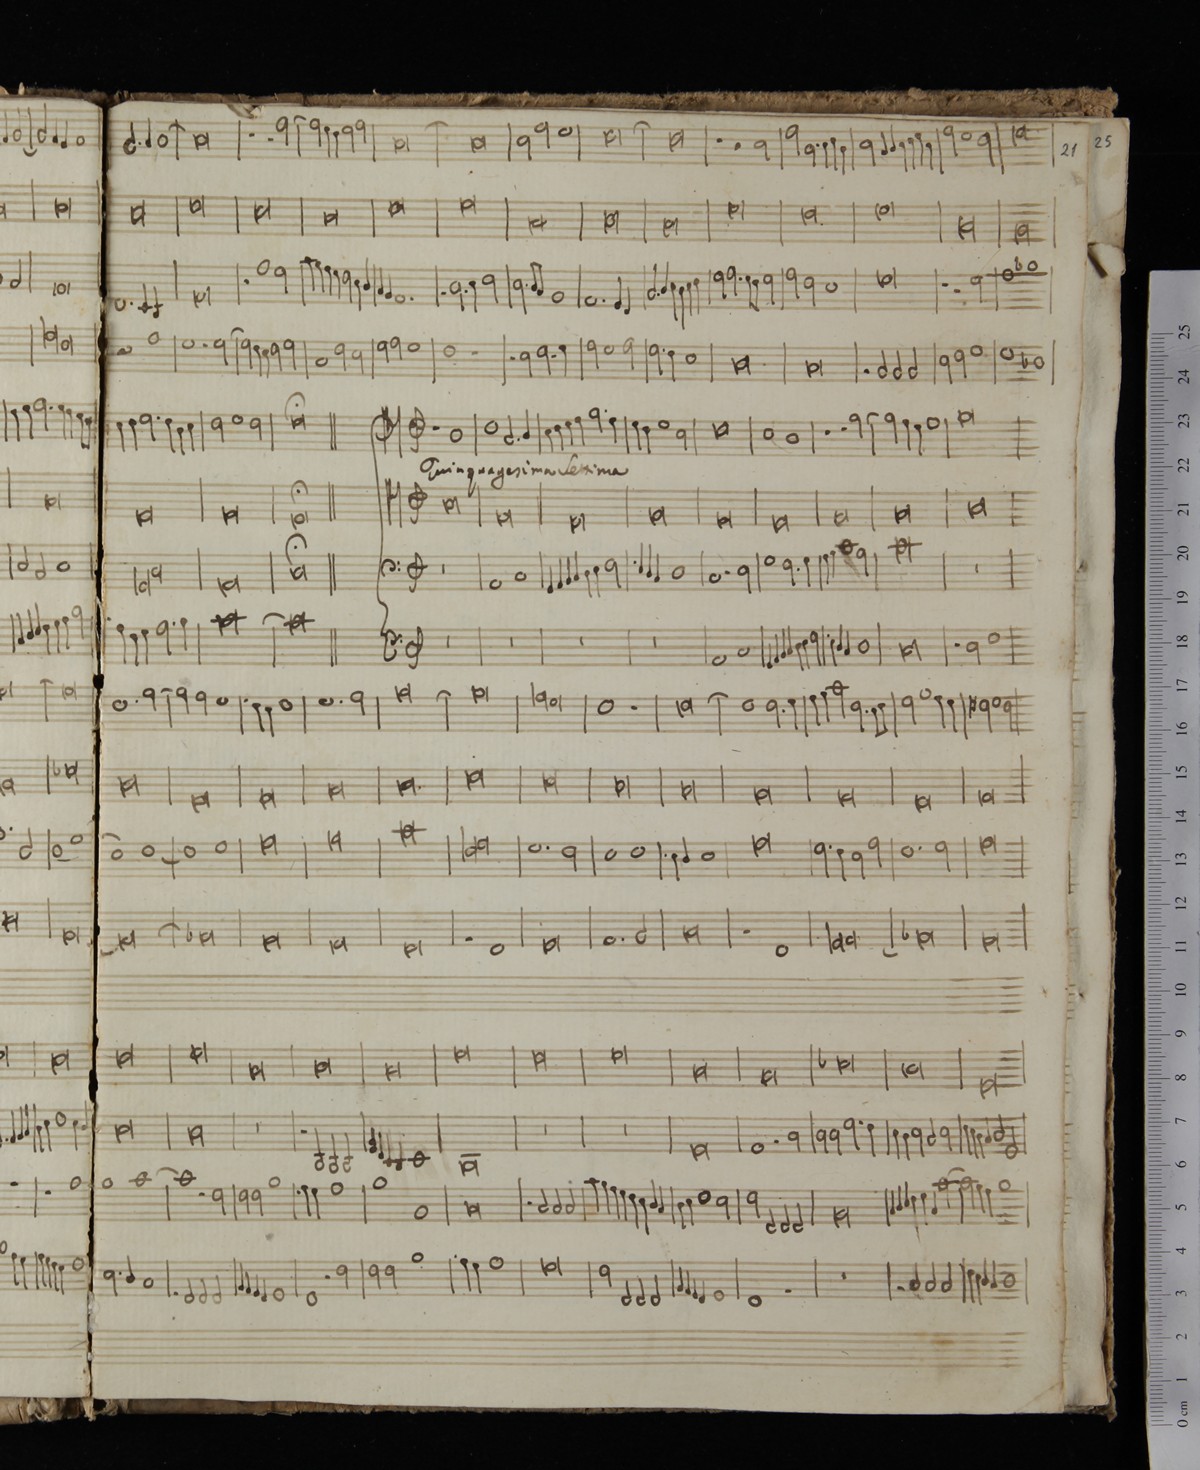 21 25
Quinquagesima Settima
25
24
23
22
21
20
19
18
17
16
15
14
13
12
11
10
9
8
7
6
5
4
3
2
1
0 cm